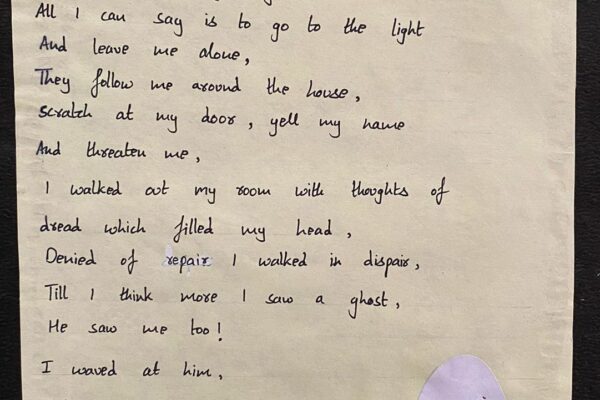 All I can say is to go to the light
And leave me alone,
They follow me around the house,
scratch at my door, yell my name
And threaten me,
I walked out my room with thoughts of
dread which filled my head,
Denied of repair I walked in dispair,
Till I think more I saw a ghost,
He saw me too!
I waved at him,